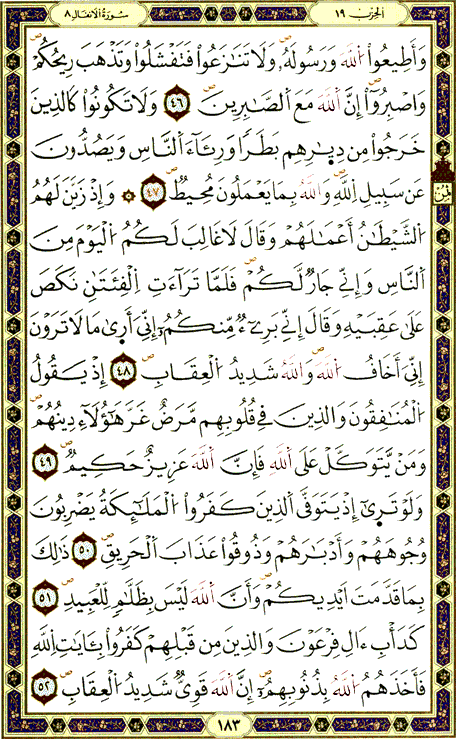 الحِزب ١٩ سُورَةُ الأَنفَال ٨
وَأَطِيعُواْ اَللَّهَ وَرَسُولَهُۥ وَلَا تَنَٰزَعُواْ فَتَفْشَلُواْ وَتَذْهَبَ رِيحُكُمْ
وَاصْبِرُوٓاْ إِنَّ اَللَّهَ مَعَ اَلصَّٰبِرِينَ ٤٦ وَلَا تَكُونُواْ كَالذِينَ
خَرَجُواْ مِن دِيٰرِهِم بَطَراً وَرِئَآءَ اَلنَّاسِ وَيَصُدُّونَ
عَن سَبِيلِ اِللَّهِ وَاللَّهُ بِمَا يَعْمَلُونَ مُحِيطٌ ٤٧ ۞ وَإِذْ زَيَّنَ لَهُمُ
ثمن
اُلشَّيْطَٰنُ أَعْمَٰلَهُمْ وَقَالَ لَا غَالِبَ لَكُمُ اُلْيَوْمَ مِنَ
اَلنَّاسِ وَإِنِّي جَارٌ لَّكُمْ فَلَمَّا تَرَآءَتِ اِلْفِئَتَٰنِ نَكَصَ
عَلَىٰ عَقِبَيْهِ وَقَالَ إِنِّي بَرِيٓءٌ مِّنكُمُۥٓ إِنِّيَ أَر۪ىٰ مَا لَا تَرَوْنَ
إِنِّيَ أَخَافُ اُللَّهَ وَاللَّهُ شَدِيدُ اُلْعِقَابِ ٤٨ إِذْ يَقُولُ
اُلْمُنَٰفِقُونَ وَالذِينَ فِي قُلُوبِهِم مَّرَضٌ غَرَّ هَٰٓؤُلَآءِ دِينُهُمْ
وَمَنْ يَّتَوَكَّلْ عَلَى اَللَّهِ فَإِنَّ اَللَّهَ عَزِيزٌ حَكِيمٌ ٤٩
وَلَوْ تَر۪ىٰٓ إِذْ يَتَوَفَّى اَلذِينَ كَفَرُواْ اُلْمَلَٰٓئِكَةُ يَضْرِبُونَ
وُجُوهَهُمْ وَأَدْبَٰرَهُمْ وَذُوقُواْ عَذَابَ اَلْحَرِيقِ ٥٠ ذَٰلِكَ
بِمَا قَدَّمَتَ اَيْدِيكُمْ وَأَنَّ اَللَّهَ لَيْسَ بِظَلَّٰمٍ لِّلْعَبِيدِ ٥١
كَدَأْبِ ءَالِ فِرْعَوْنَ وَالذِينَ مِن قَبْلِهِمْ كَفَرُواْ بِـَٔايَٰتِ اِللَّهِ
فَأَخَذَهُمُ اُللَّهُ بِذُنُوبِهِمُۥٓ إِنَّ اَللَّهَ قَوِيٌّ شَدِيدُ اُلْعِقَابِ ٥٢
١٨٣